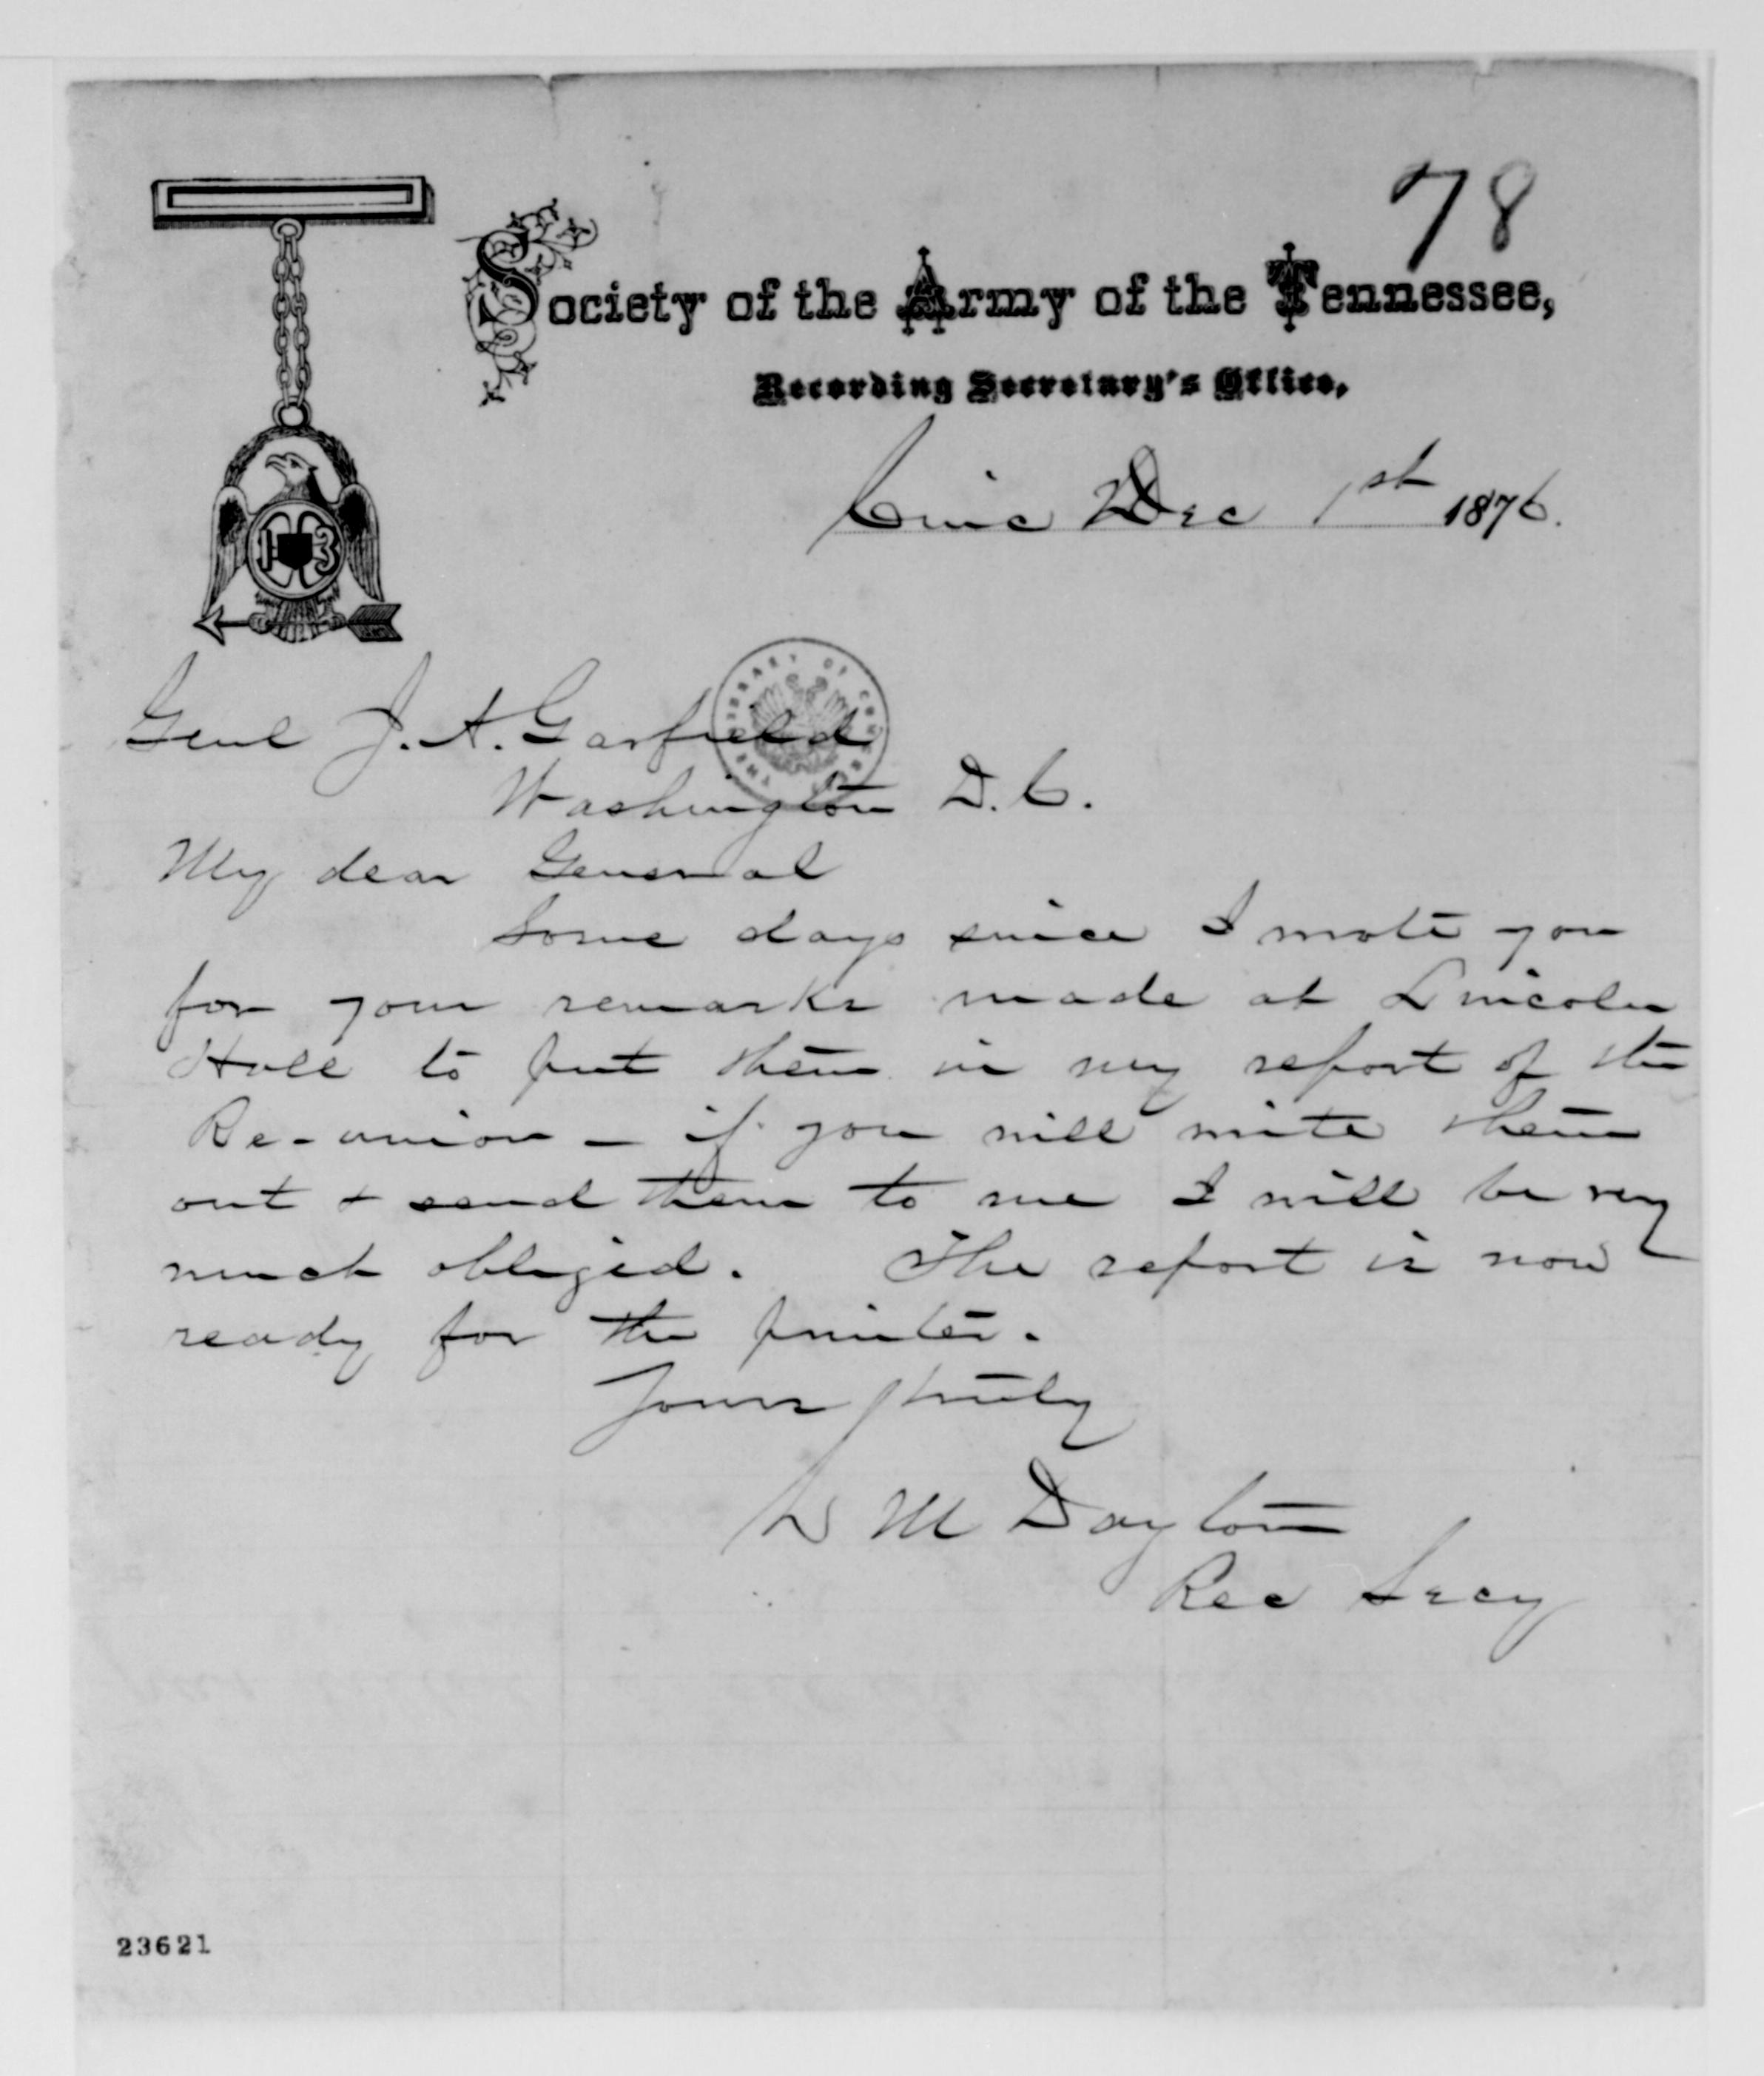 78
Society of the Army of the Tennessee,
Recording Secretary's Office,
Cinc Dec 1st 1876.
13
THE LIBRARY OF CONGRESS
Genl J. A. Garfield
Washington D. C.
My dear General
Some days since I wrote you
for your remarks made at Lincoln
Hall to put them in my report of the
Re-union – if you will write them
out & send them to me I will be very
much obliged. The report is now
ready for the printer.
Yours truly
L M Dayton
Rec Secy
23621